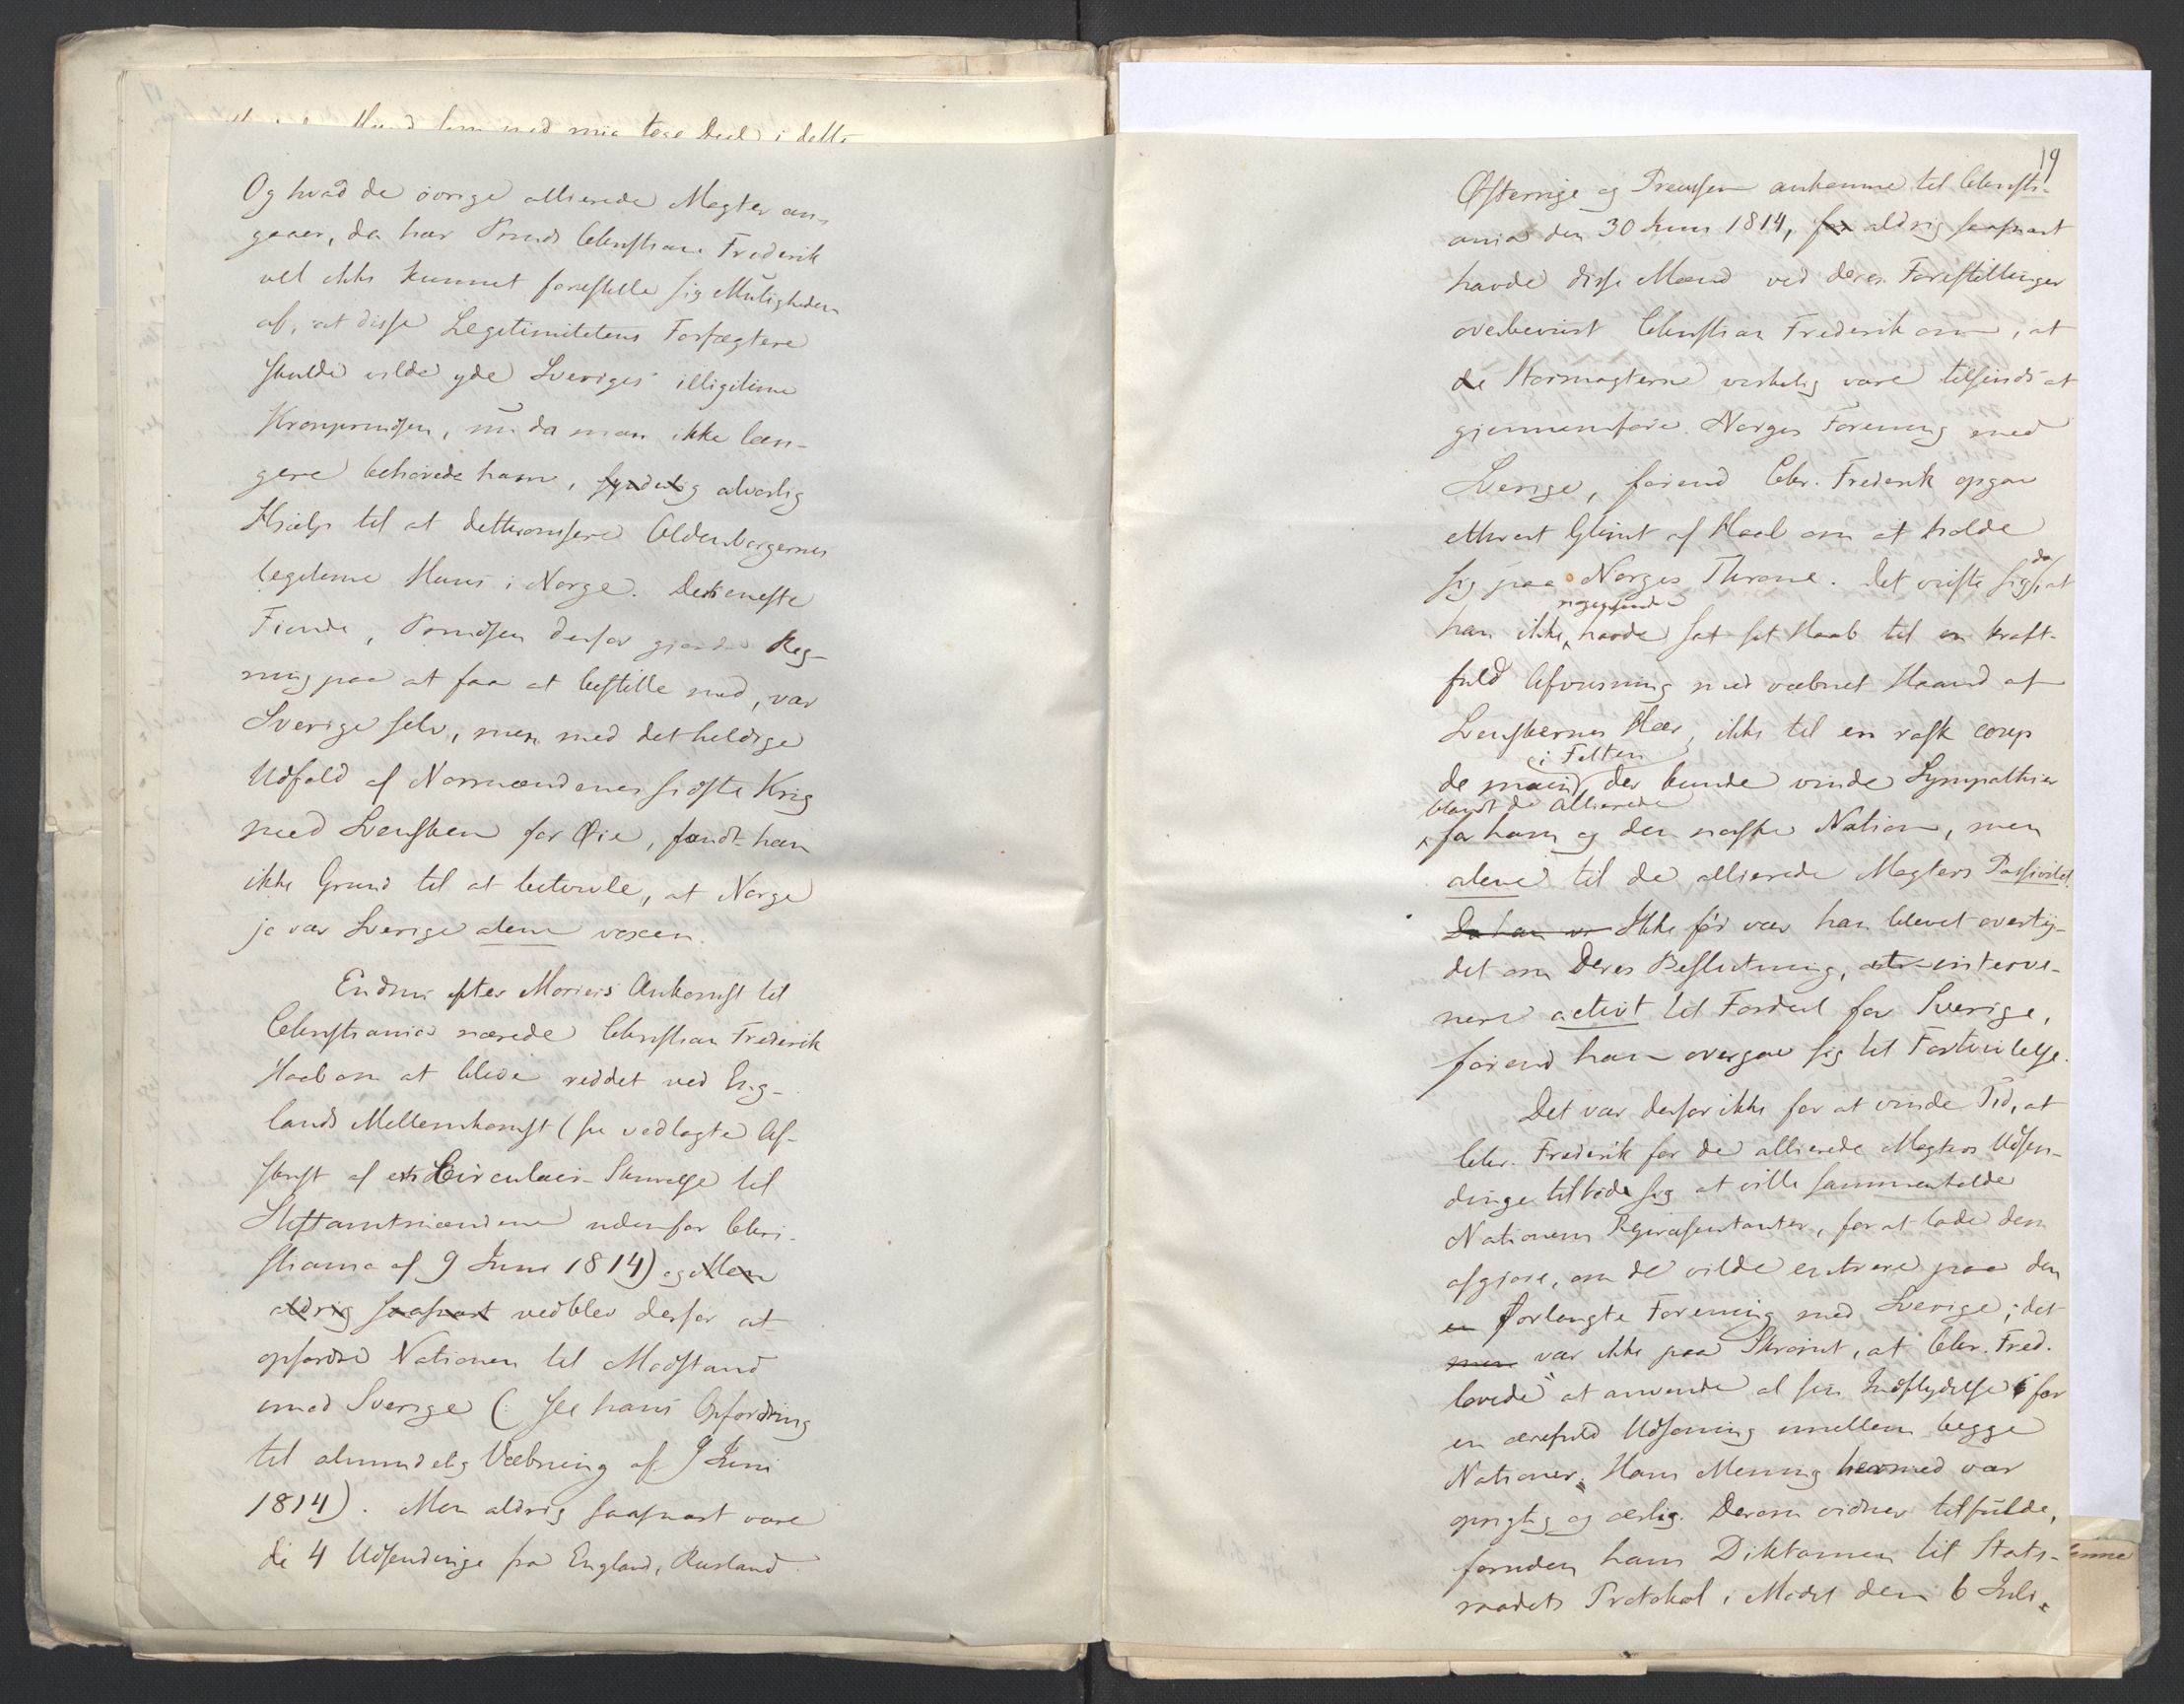 Og hvad de øvrige allierede Magter an-
gaaer, da har Prinds Christian Frederik
vel ikke kunnet forestille sig Muligheden
af, at disse Legitimitetens Forfægtere
skulde vilde yde Sveriges illigitime
Kronprindsen, nu da man ikke læn-
gere behøvede ham, alvorlig
Hjælp til at dethronisere Oldenborgernes
legitime Huus i Norge. Den eneste
Fiende, Prindsen derfor gjorde Reg-
ning paa at faa at bestille med, var
Sverige selv, men med det heldige
Udfald af Normændenes sidste Krig
med Svensken for Øie, fandt han
ikke Grund til at betvivle, at Norge
jo var Sverige alene voxen.
Endnu efter Moriers Ankomst til
Christiania nærede Christian Frederik
Haab om at blive reddet ved Eng-
lands Mellemkomst (see vedlagte Af-
skrift af et Circulair-Skrivelse til
Stiftamtmændene udenfor Chri-
stiania af 9 Juni 1814) og Men
aldrig saasnart vedblev derfor at
opfordre Nationen til Modstand
imod Sverige (: see hans Opfordring
til almindelig Væbning af 9 Juni
1814). Men aldrig saasnart vare
de 4 Udsendinge fra England, Rusland
19
Østerrige og Preussen ankomne til Christi-
ania den 30 Juni 1814, før aldrig saasnart
havde disse Mænd ved deres Forestillinger
overbeviist Christian Frederik om, at
de Stormagterne virkelig vare tilsinds at
gjennemføre Norges Forening med
Sverige, førend Chr. Frederik opgav
ethvert Glimt af Haab om at holde
sig paa Norges Throne. Det viiste sig da, at
han ikke havde sat sit Haab til en kraft-
fuld Afviisning med væbnet Haand af
Svenskernes Hær, ikke til en rask coup
de main i Felten, der kunde vinde Sympathier
blandt de Allierede
for ham og den norske Nation, men
alene til de allierede Magters Passivitet.
Da han var Ikke før var han blevet overty-
det om Deres Beslutning, at interve-
nere activt til Fordeel for Sverige,
førend han overgav sig til Fortvivlelse.
Det var derfor ikke for at vinde Tid, at
Chr. Frederik for de allierede Magters Udsen-
dinge tilbød sig at ville sammenkalde
Nationens Repræsentanter, for at lade dem
afgjøre, om de vilde entrere paa den
en forlangte Forening med Sverige; det
men var ikke paa Skrømt, at Chr. Fred.
lovede "at anvende al sin Indflydelse for
en ærefuld Udsoning imellem begge
Nationer". Hans Mening hermed var
oprigtig og ærlig. Derom vidner tilfulde,
foruden hans Diktamen til Stats-
raadets Protokol i Mødet den 6 Juli